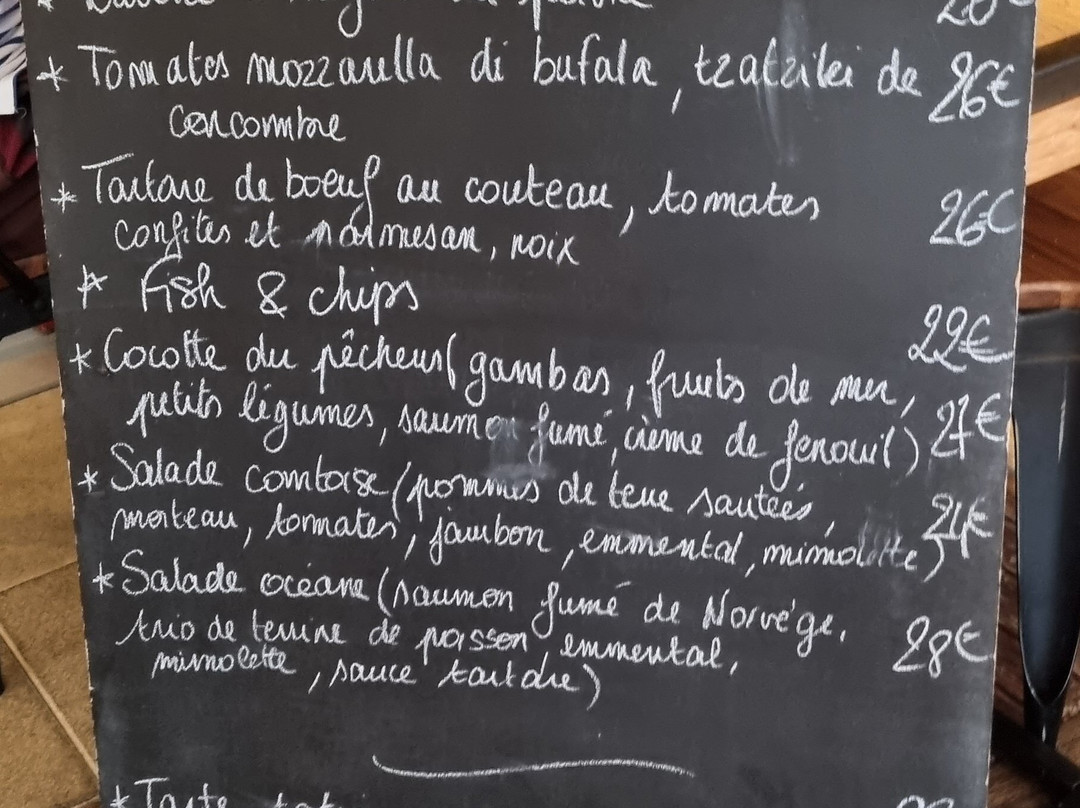 * Tomates mozzarella di bufala, tzatziki de 26€
concombre
* Tartare de boeuf au couteau, tomates
confites et parmesan, noix 26€
* Fish & chips 22€
* Cocotte du pêcheur (gambas, fruits de mer,
petits légumes, saumon fumé, crème de fenouil) 27€
* Salade comtoise (pommes de terre sautées,
morteau, tomates, jambon, emmental, mimolette) 24€
* Salade océane (saumon fumé de Norvége,
trio de terrine de poisson, emmental, 28€
mimolette, sauce tartare)
* Tarte